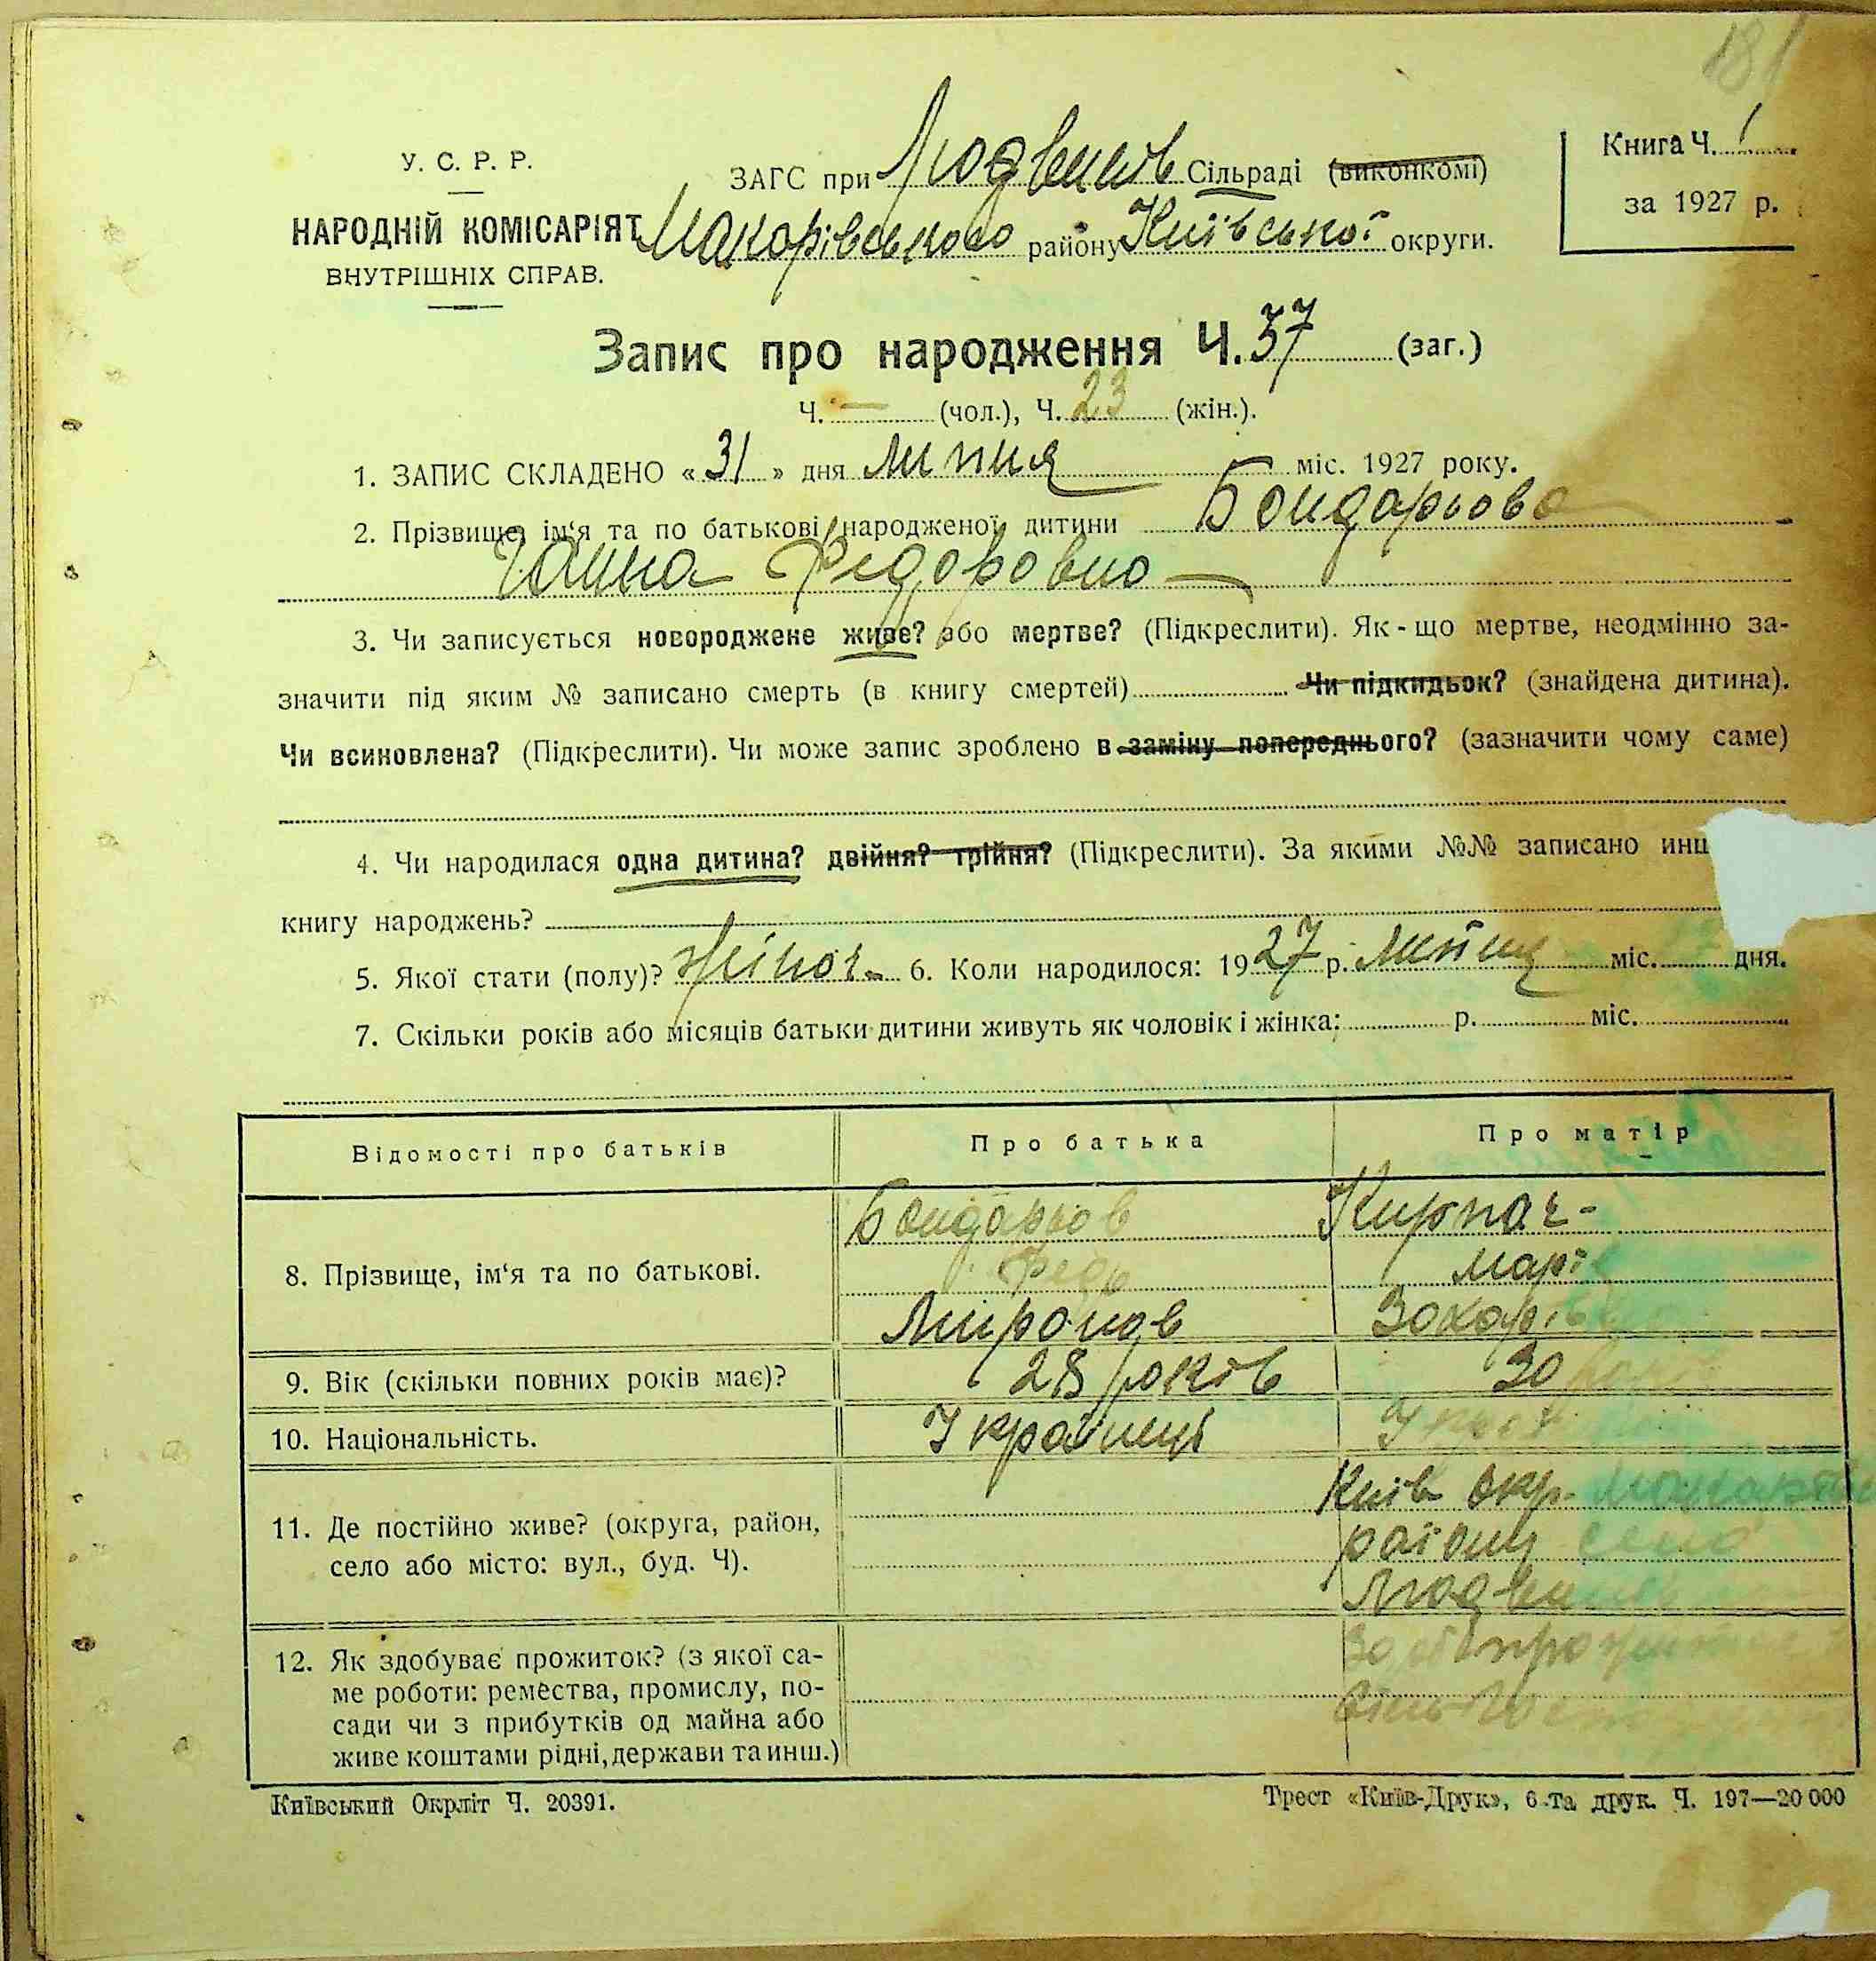 181
У. С. Р. Р.
НАРОДНІЙ КОМІСАРІЯТ
ВНУТРІШНІХ СПРАВ.
ЗАГС при Людвинів Сільраді (виконкомі)
Макорівського району Київської округи.
Книга Ч. 1
за 1927 р.
Запис про народження Ч. 37 (заг.)
Ч. — (чол.), Ч. 23 (жін.).
1. ЗАПИС СКЛАДЕНО « 31 » дня липня міс. 1927 року.
2. Прізвище, ім‘я та по батькові народженої дитини Бондарьова
Ганна Федоровна
3. Чи записується новороджене живе? або мертве? (Підкреслити). Як - що мертве, неодмінно за-
значити під яким № записано смерть (в книгу смертей) Чи підкидьок? (знайдена дитина).
Чи всиновлена? (Підкреслити). Чи може запис зроблено в заміну попереднього? (зазначити чому саме)
4. Чи народилася одна дитина? двійня? трійня? (Підкреслити). За якими №№ записано инш
книгу народжень?
5. Якої стати (полу)? жіноч. 6. Коли народилося: 1927 р. липня міс. дня.
7. Скільки років або місяців батьки дитини живуть як чоловік і жінка: р. міс.
Відомості про батьків
Про батька
Про матір
8. Прізвище, ім‘я та по батькові.
Бондарьов
Федь
Миронов
Кирпач-
Марія
Зохарів
9. Вік (скільки повних років має)?
28 років
30
10. Національність.
Українець
11. Де постійно живе? (округа, район,
село або місто: вул., буд. Ч).
Київ окр. Макарів
району село
Людвин
12. Як здобуває прожиток? (з якої са-
ме роботи: ремества, промислу, по-
сади чи з прибутків од майна або
живе коштами рідні, держави та инш.)
Київський Окрліт Ч. 20391.
Трест «Київ-Друк», 6-та друк. Ч. 197—20 000